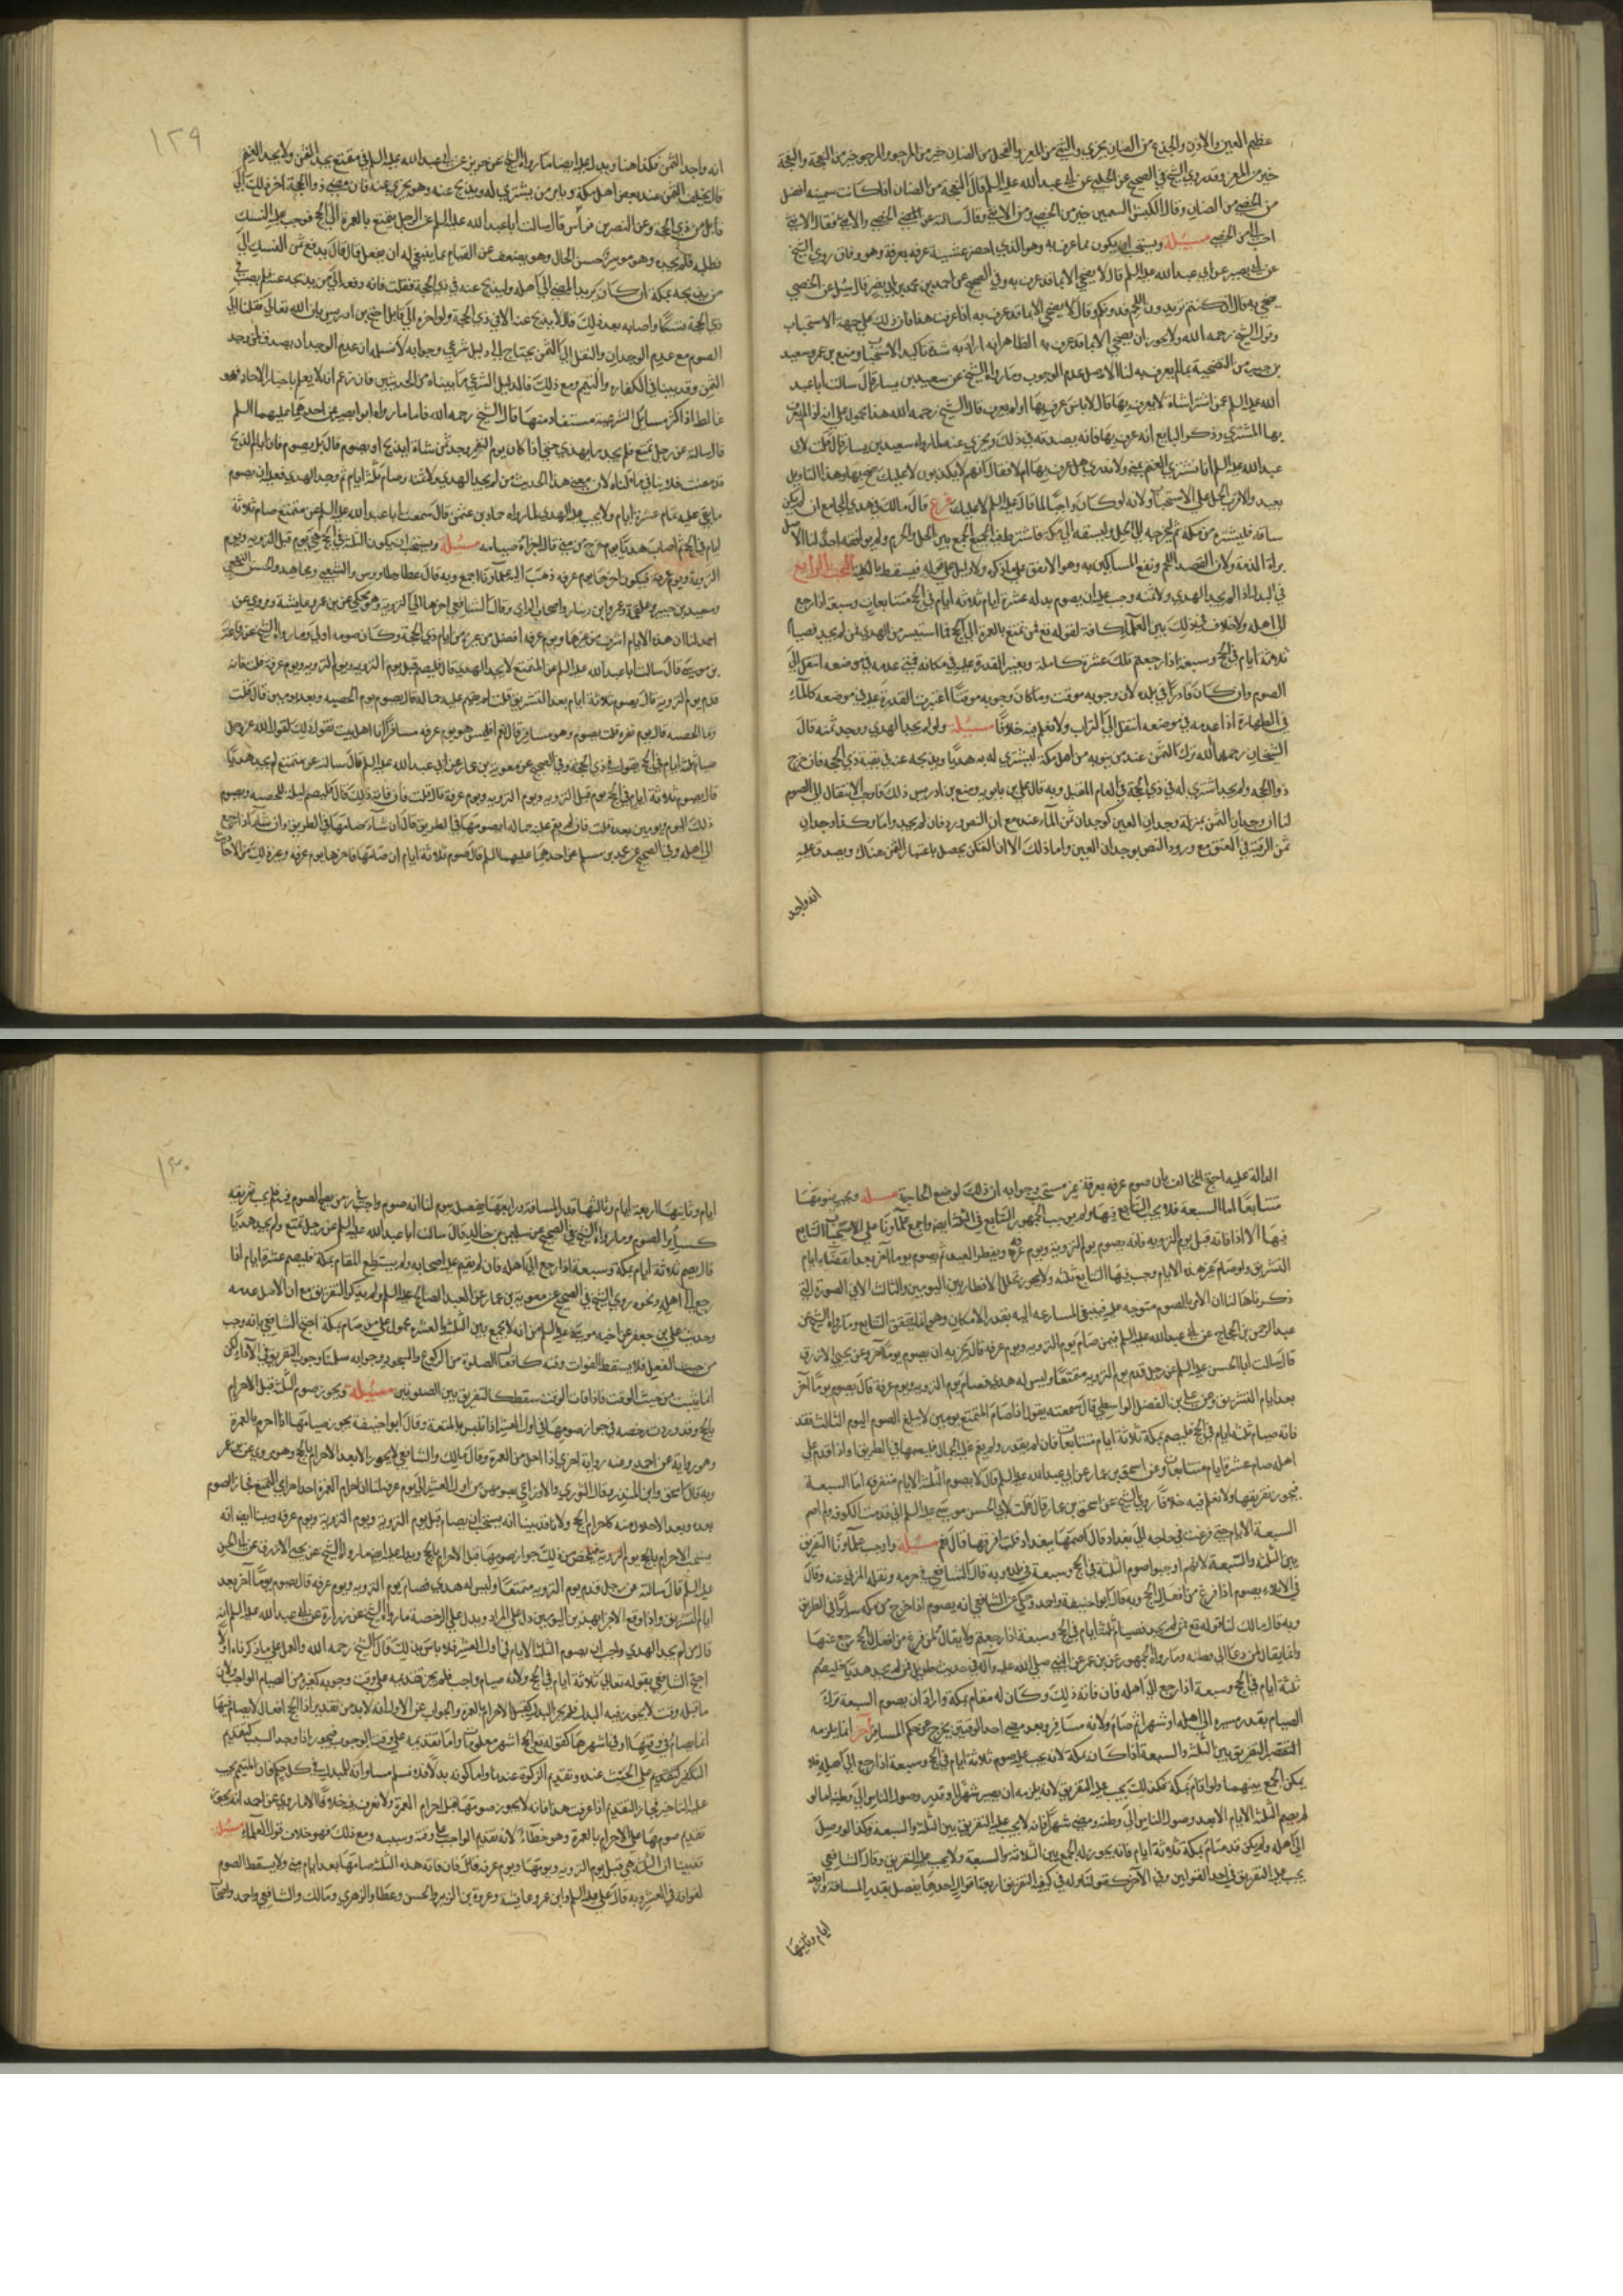 عظيم العين والاذن والجذع من الضان يجزي والثني من المعز والفحل من الضان خير من الموجوء والموجوء خير من النعجة والنعجة
خير من المعز وقد روي الشيخ في الصحيح عن الحلبي عن ابي عبد الله عليه السلم قال النعجة من الضان اذا كانت سمينه افضل
من الخصي من الضان وقال الكبش السمين خير من الخصي ومن الانثي وقال سالته عن الخصي والانثي فقال الانثي
احب الي من الخصي مسئلة ويستحب ان يكون مما عرف به وهو الذي احضر عشية عرفه بعرفة وهو وفاق روي الشيخ
عن ابي بصير عن ابي عبد الله عليه السلم قال لا يضحي الا بما قد عرف به وفي الصحيح عن احمد بن محمد بن ابي نصر قال سئل عن الخصي
يضحي به قال ان كنتم تريدون اللحم فدونكم وقال لا يضحي الا بما قد عرف به اذا عرفت هذا فان ذلك علي جهة الاستحباب
وقول الشيخ رحمه الله ولا يجوز ان يضحي الا بما قد عرف به الظاهر انه اراد به شدة تاكيد الاستحباب ومنع بن عمر وسعيد
بن جبير من التضحية بما لم يعرف به لنا الاصل عدم الوجوب وما رواه الشيخ عن سعيد بن يسار قال سالت ابا عبد
الله عليه السلم عمن اشترا شاة لا يعرف بها قال لا باس عرف بها او لم يعرف قال الشيخ رحمه الله هذا محمول علي انه اذا لم يعرف
بها المشتري وذكر البايع انه عرف بها فانه يصدقه في ذلك ويجزي عنه لما رواه سعيد بن يسار قال قلت لابي
عبد الله عليه السلم انا نشتري الغنم بمني ولا ندري هل عرف بها ام لا فقال انهم لا يكذبون لا عليك ضح بها وهذا التاويل
بعيد والاقرب الحمل علي الاستحباب ولانه لو كان واجبا لما قال عليه السلم لا عليك فرع قال مالك في هدي المجامع ان لم يكن
ساقه فليشتره من مكة ثم ليخرجه الي الحل وليسقه الي مكة فاشترط فيه الجمع بين الحل والحرم ولم يوافقه احد لنا الاصل
براة الذمة ولان القصد اللحم ونفع المساكين به وهو لا يقف علي ما ذكره ولا دليل علي قوله فيسقط بالكلية البحث الرابع
في البدل اذا لم يجد الهدي ولا ثمنه وجب عليه ان يصوم بدله عشرة ايام ثلاثه ايام في الحج متتابعات وسبعة اذا رجع
الي اهله ولا خلاف في ذلك بين العلماء كافة لقوله تع فمن تمتع بالعمرة الي الحج فما استيسر من الهدي فمن لم يجد فصيام
ثلاثة ايام في الحج وسبعة اذا رجعتم تلك عشرة كاملة ويعتبر القدرة عليه في مكانه فمتي عدمه في موضعه انتقل الي
الصوم وان كان قادرا في بلده لان وجوبه موقت وما كان وجوبه موقتا اعتبرت القدرة عليه في موضعه كالماء
في الطهارة اذا عدمه في موضعه انتقل الي التراب ولا نعلم فيه خلافا مسئلة ولو لم يجد الهدي ووجد ثمنه قال
الشيخان رحمهما الله ترك الثمن عند من يثق به من اهل مكة ليشتري له به هديا ويذبحه عنه في بقية ذي الحجة فان خرج
ذو الحجه ولم يجد اشتري له في ذي الحجة في العام المقبل وبه قال علي بن بابويه ومنع بن ادريس ذلك واوجب الانتقال الي الصوم
لنا ان وجدان الثمن بمنزلة وجدان العين كوجدان ثمن الماء عنده مع ان النص ورد فان لم يجد واما وكفاه وجدان
ثمن الرقبة في العتق مع ورود النص بوجدان العين وما ذلك الا ان التمكن يحصل باعتبار الثمن هناك ويصدق عليه
انه واجد
١٢٩
انه واجد الثمن فكذا هنا ويدل عليه ايضا ما رواه الشيخ عن حريز عن ابي عبد الله عليه السلم في متمتع يجد الثمن ولا يجد الغنم
قال يخلف الثمن عند بعض اهل مكة ويامر من يشتري له ويذبح عنه وهو يجزي عنه فان مضي ذو الحجة اخر ذلك الي
قابل من ذي الحجة وعن النضر بن قرواش قال سالت ابا عبد الله عليه السلم عن الرجل يتمتع بالعمرة الي الحج فوجب عليه النسك
فطلبه فلم يجده وهو موسر حسن الحال وهو يضعف عن الصيام فما ينبغي له ان يفعل قال يدفع ثمن النسك الي
من يذبحه بمكة ان كان يريد المضي الي اهله وليذبح عنه في ذي الحجة فقلت فانه دفعه الي من يذبحه عنه فلم يصب في
ذي الحجة نسكا واصابه بعد ذلك قال لا يذبح عنه الا في ذي الحجة ولو اخره الي قابل احتج بن ادريس بان الله تعالي نقلنا الي
الصوم مع عدم الوجدان والنقل الي الثمن يحتاج الي دليل شرعي وجوابه لا نسلم ان عدم الوجدان يصدق لمن وجد
الثمن وقد بينا في الكفاره والتيمم ومع ذلك فالدليل الشرعي ما بيناه من الحديثين فان زعم انه لا يعمل باخبار الاحاد فهو
غالط اذ اكثر مسائل الشرعية مستفاد منها قال الشيخ رحمه الله فاما ما رواه ابو بصير عن احدهما عليهما السلم
قال سالته عن رجل تمتع فلم يجد ما يهدي حتي اذا كان يوم النفر وجد ثمن شاة ايذبح او يصوم قال بل يصوم فان ايام الذبح
قد مضت فلا ينافي ما قلناه لان معني هذا الحديث من لم يجد الهدي ولا ثمنه وصام ثلثة ايام ثم وجد الهدي فعليه ان يصوم
ما بقي عليه تمام عشرة ايام ولا يجب عليه الهدي لما رواه حماد بن عثمن قال سمعت ابا عبد الله عليه السلم عن متمتع صام ثلاثة
ايام في الحج ثم اصاب هديا يوم خرج من مني قال اجزاه صيامه مسئلة ويستحب ان يكون الثلثة في الحج هي يوم قبل الترويه ويوم
التروية ويوم عرفة فيكون اخرها يوم عرفه ذهب اليه علماؤنا اجمع وبه قال عطا وطاوس والشعبي ومجاهد والحسن والنخعي
وسعيد بن جبير وعلقمة وعمرو ابن دينار واصحاب الراي وقال الشافعي اخرها الي الترويه وهو محكي عن بن عمر وعايشة ومروي عن
احمد لنا ان هذه الايام اشرف من غيرها ويوم عرفه افضل من غيره من ايام ذي الحجة وكان صومه اولي وما رواه الشيخ عن رفاعة
بن موسي قال سالت ابا عبد الله عليه السلم عن المتمتع لا يجد الهدي قال فليصم قبل يوم الترويه ويوم الترويه ويوم عرفة قلت فانه
قدم يوم الترويه قال يصوم ثلاثة ايام بعد التشريق قلت لم يقم عليه جماله قال يصوم يوم الحصبه وبعده يومين قال قلت
وما الحصبه قال يوم نفره قلت يصوم وهو مسافر قال نعم اليس هو يوم عرفه مسافرا انا اهل بيت نقول ذلك لقول الله عز وجل
صيام ثلثة ايام في الحج يقول في ذي الحجة وفي الصحيح عن معوية بن عمار عن ابي عبد الله عليه السلم قال سالته عن متمتع لم يجد هديا
قال يصوم ثلاثة ايام في الحج يوم قبل الترويه ويوم الترويه ويوم عرفة قال قلت فان فاته ذلك قال فليصم ليلة الحصبه ويصوم
ذلك اليوم ويومين بعده قلت فان لم يقم عليه جماله ايصومها في الطريق قال ان شاء صامها في الطريق وان شاء اذا رجع
الي اهله وفي الصحيح عن محمد بن مسلم عن احدهما عليهما السلم قال صوم ثلاثة ايام ان صامها فاخرها يوم عرفه وغير ذلك من الاحاديث
الدالة عليه احتج المخالف بان صوم عرفه بعرفة غير مستحب وجوابه ان ذلك لوضع الحاجة مسئله ويجب صومها
متتابعا اما السبعة فلا يجب التتابع فيها ولم يوجب الجمهور التتابع في الثلثة ايضا واجمع علماؤنا علي ايجاب التتابع
فيها الا اذا فاته قبل يوم الترويه فانه يصوم يوم الترويه ويوم عرفة ويفطر العيد ثم يصوم يوما اخر بعد انقضاء ايام
التشريق ولو صام غير هذه الايام وجب فيها التتابع ثلثه ولا يجوز تخلل الافطار بين اليومين والثالث الا في الصورة التي
ذكرناها لنا ان الامر بالصوم متوجه عليه فينبغي المسارعه اليه بقدر الامكان وهو انما يتحقق التتابع وما رواه الشيخ عن
عبد الرحمن بن الحجاج عن ابي عبد الله عليه السلم فيمن صام يوم الترويه ويوم عرفه قال يجزيه ان يصوم يوما اخر وعن يحيي الازرق
قال سالت ابا الحسن عليه السلم عن رجل قدم يوم الترويه متمتعا وليس له هدي فصام يوم الترويه ويوم عرفة قال يصوم يوما اخر
بعد ايام التشريق وعن علي بن الفضل الواسطي قال سمعته يقول اذا صام المتمتع يومين لا يبلغ الصوم اليوم الثالث فقد
فاته صيام ثلثة ايام في الحج فليصم بمكة ثلاثة ايام متتابعات فان لم يقدر ولم يقم عليه الجمال فليصمها في الطريق او اذا قدم علي
اهله صام عشرة ايام متتابعات وعن اسحق بن عمار عن ابي عبد الله عليه السلم قال لا يصوم الثلثة الايام متفرقه اما السبعة
فيجوز تفريقها ولا نعلم فيه خلافا روي الشيخ عن اسحق بن عمار قال قلت لابي الحسن موسي عليه السلم اني قدمت الكوفه ولم اصم
السبعة الايام حتي فزعت في حاجه الي بغداد قال صمها ببغداد قلت افرقها قال نعم مسئلة واوجب علماؤنا التفريق
بين الثلثة والسبعة لانهم اوجبوا صوم الثلثة في الحج وسبعة في وطنه وبه قال الشافعي في حرمله ونقله المزني عنه وقال
في الاملاء يصوم اذا فرغ من افعال الحج وبه قال ابو حنيفة واحمد وحكي عن الشافعي انه يصوم اذا خرج من مكه سائرا في الطريق
وبه قال مالك لنا قوله تع فمن لم يجد فصيام ثلثة ايام في الحج وسبعة اذا رجعتم ولا يقال لمن فرغ من افعال الحج رجع عنها
وانما يقال لمن دعا الي وطنه وما رواه الجمهور عن بن عمر عن النبي صلي الله عليه واله في حديث طويل فمن لم يجد هديا فليصم
ثلثة ايام في الحج وسبعة اذا رجع الي اهله فان فاته ذلك وكان له مقام بمكة واراد ان يصوم السبعة ترك
الصيام بقدر مسيره الي اهله او شهرا ثم صام ولانه مسافر وبعد مضي احد الوقتين يخرج عن حكم المسافر اخر انما يلزمه
التفريق بين الثلثة والسبعة اذا كان بمكة لانه يجب عليه صوم ثلاثة ايام في الحج وسبعة اذا رجع الي اهله فلا
يمكن الجمع بينهما ولو اقام بمكة فكذلك يجب عليه التفريق لانه يلزمه ان يصبر شهرا او قدر وصول الناس الي وطنه اما لو
لم يصم الثلثة الايام الا بعد وصول الناس الي وطنه ومضي شهر فانه لا يجب عليه التفريق بين الثلثة والسبعة وكذا لو وصل
الي اهله ولم يكن قد صام بمكة ثلاثة ايام فانه يجوز له الجمع بين الثلاثة والسبعة ولا يجب عليه التفريق وقال الشافعي
يجب عليه التفريق في احد القولين وفي الاخر كقولنا وله في كيفية التفريق اربعة اقوال احدها يفصل بقدر المسافة واربعة
ايام وثانيها
١٣٠
ايام وثانيها اربعة ايام وثالثها قدر المسافة ورابعها يفصل بيوم لنا انه صوم واجب في زمن يصح الصوم فيه فلم يجب تفريقه
كسائر الصوم وما رواه الشيخ في الصحيح عن سليمن بن خالد قال سالت ابا عبد الله عليه السلم عن رجل تمتع ولم يجد هديا
قال يصوم ثلاثة ايام بمكة وسبعة اذا رجع الي اهله فان لم يقم عليه اصحابه ولم يستطع المقام بمكة فليصم عشرة ايام اذا
رجع الي اهله ونحوه روي الشيخ في الصحيح عن معوية بن عمار عن العبد الصالح عليه السلم ولم يذكر التفريق مع ان الاصل عدمه
وحديث علي بن جعفر عن اخيه موسي عليه السلم من انه لا يجمع بين الثلثة والعشره محمول علي من صام بمكة احتج الشافعي بانه وجب
من حيث الفعل فلا يسقط بالفوات وقته كافعال الصلوة من الركوع والسجود وجوابه سلمنا وجوب التفريق في الاداء لكن
انما يثبت من حيث الوقت فاذا فات الوقت سقط كالتفريق بين الصلوتين مسئلة ويجوز صوم الثلثة قبل الاحرام
بالحج وقد وردت رخصه في جواز صومها في اول العشر اذا تلبس بالمتعة وقال ابو حنيفة يجوز صيامها اذا احرم بالعمرة
وهو رواية عن احمد وعنه رواية اخري اذا احل من العمرة وقال مالك والشافعي لا يجوز الا بعد الاحرام بالحج وهو مروي عن بن عمر
وبه قال اسحق وابن المنذر وقال الثوري والاوزاعي يصومهن من اول العشر الي يوم عرفه لنا ان احرام العمرة احد احرامي التمتع فجاز الصوم
بعده وبعد الاحلال منه كاحرام الحج ولانا قد بينا انه يستحب ان يصام قبل يوم الترويه ويوم الترويه ويوم عرفه وبينا ايضا انه
يستحب الاحرام بالحج يوم الترويه فيلخص من ذلك جواز صومها قبل الاحرام بالحج ويدل عليه ايضا ما رواه الشيخ عن يحيي الازرق عن ابي الحسن
عليه السلم قال سالته عن رجل قدم يوم الترويه متمتعا وليس له هدي فصام يوم الترويه ويوم عرفه قال يصوم يوما اخر بعد
ايام التشريق واذا وقع الاجزاء بهذين اليومين دل علي المراد ويدل علي الرخصة ما رواه الشيخ عن زرارة عن ابي عبد الله عليه السلم انه
قال من لم يجد الهدي واحب ان يصوم الثلثة الايام في اول العشر فلا باس بذلك قال الشيخ رحمه الله والعمل علي ما ذكرناه اولا
احتج الشافعي بقوله تعالي ثلاثة ايام في الحج ولانه صيام واجب فلم يجز تقديمه علي وقت وجوبه كغيره من الصيام الواجب ولان
ما قبله وقت لا يجوز فيه المبدل فلم يجز البدل كقبل الاحرام بالعمرة والجواب عن الاول انه لا بد من تقدير اذ الحج افعال لا يصام فيها
انما يصام في وقتها او في اشهرها كقوله تع الحج اشهر معلومات واما تقديمه علي وقت الوجوب فيجوز اذا وجد السبب كتقديم
التكفير كتقديم علي الحنث عنده وتقديم الزكوة عندنا واما كونه بدلا فلا نسلم مساواته للمبدل في كل حكم فان المتيمم يجب
عليه التاخير فجاز التقديم اذا عرفت هذا فانه لا يجوز صومها قبل احرام العمرة ولا نعرف فيه خلافا الا ما روي عن احمد انه يجوز
تقديم صومها علي الاحرام بالعمرة وهو خطاء لانه تقديم الواجب علي وقته وسببه ومع ذلك فهو خلاف قول العلماء مسئلة
قد بينا ان الثلثة هي قبل يوم الترويه ويومها ويوم عرفه قال فان فاته هذه الثلثة صامها بعد ايام مني ولا يسقط الصوم
لفواته في العشر وبه قال علي عليه السلم وابن عمر وعايشة وعروة بن الزبير والحسن وعطا والزهري ومالك والشافعي واحمد واصحاب